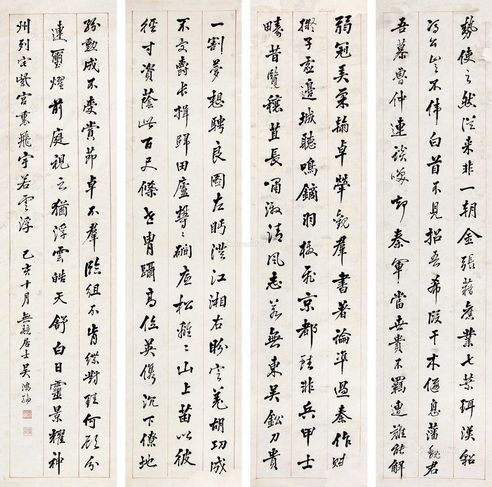 勢使之然從来非一朝金張藉舊業七葉珥漢貂
馮公豈不偉白首不見招吾希段干木偃息藩魏君
吾慕魯仲連談笑却秦軍當世貴不羈遭難能解
弱冠弄柔翰卓犖觀羣書著論準過秦作賦
擬子虛邊城聽鳴鏑羽檄飛京都雖非兵甲士
疇昔覽穰苴長嘯激清風志若無東吳鉛刀貴
一割夢想騁良圖左眄澄江湘右盼定羌胡功成
不受爵長揖歸田廬鬱〻澗底松離〻山上苗以彼
徑寸資蔭此百尺條世胄躡高位英俊沉下僚地
紛勲成不受賞節卓不羣臨組不肯緤對珪何顧分
連璽燿前庭視之猶浮雲皓天舒白日靈景耀神
州列宅紫宮裏飛宇若雲浮 己亥十月 居士吳鴻